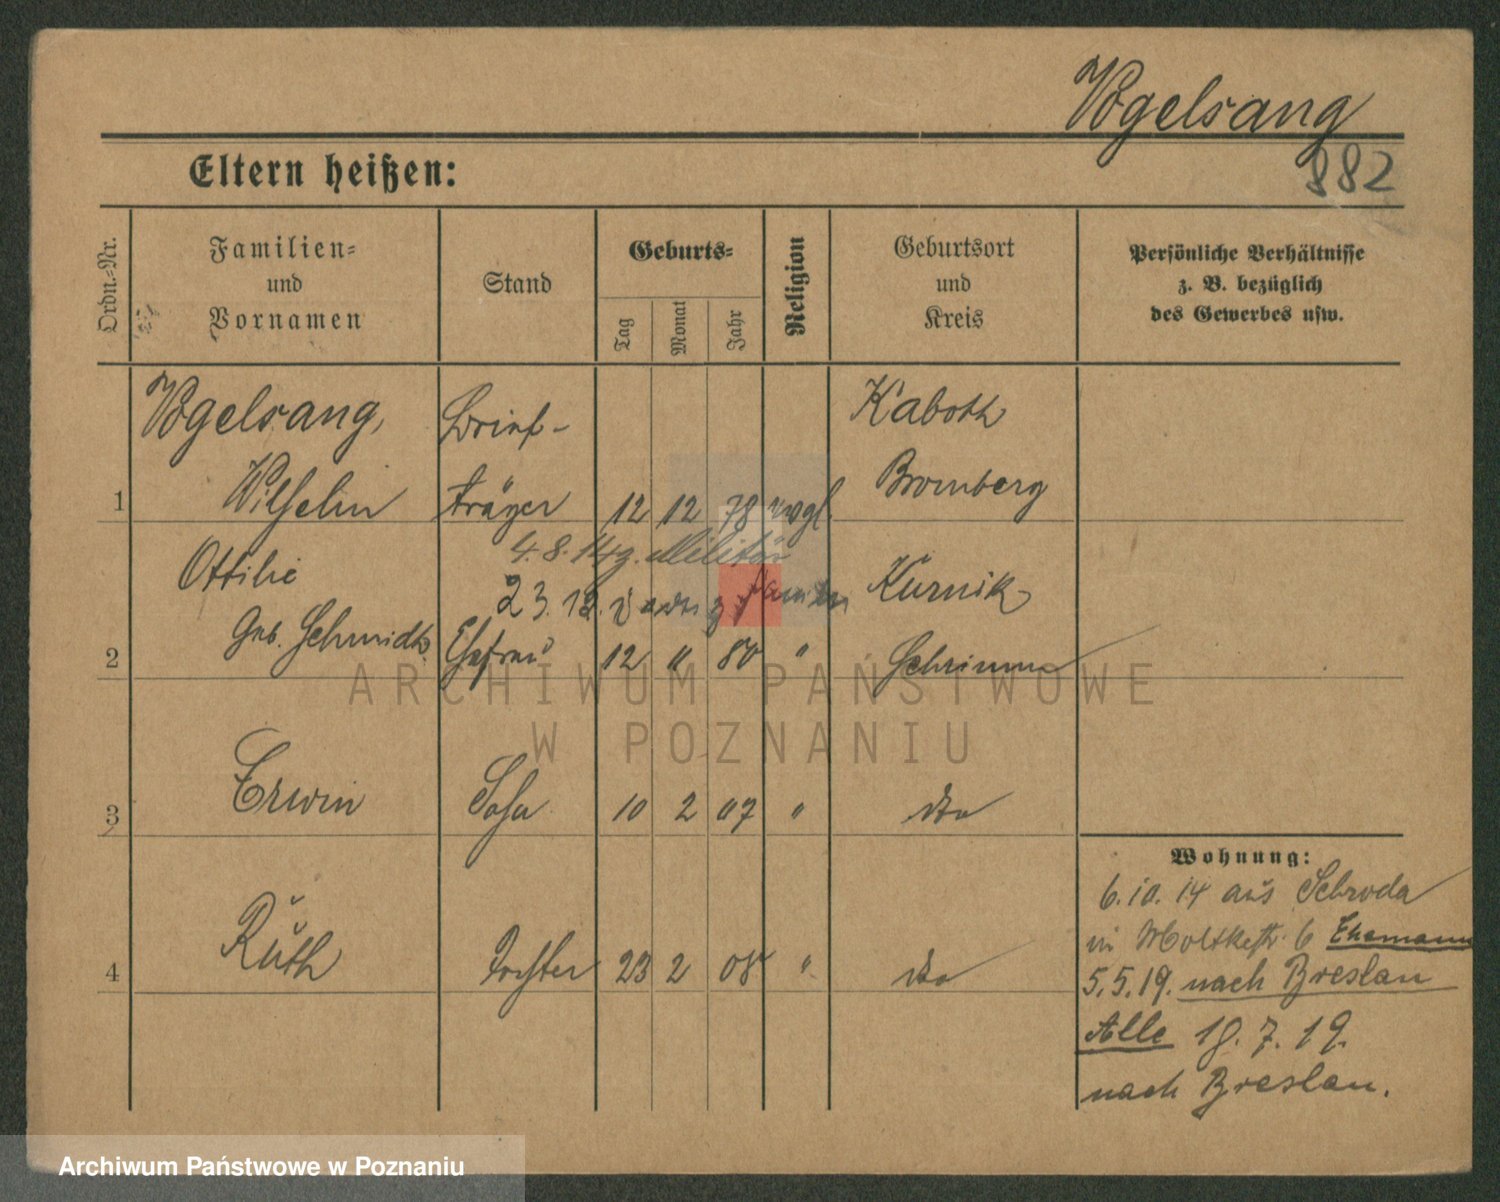 Vogelsang
882
Eltern heißen:
Ordn.-Nr.
Familien-
und
Vornamen
Stand
Geburts-
Tag
Monat
Jahr
Religion
Geburtsort
und
Kreis
Persönliche Verhältnisse
z. B. bezüglich
des Gewerbes usw.
Vogelsang, Brief- Kaboth
1 Wilhelm träger 12 12 78 evgl. Bromberg
4.8.14 z. Militär
Ottilie 23.12. Kurnik
2 geb. Schmidt Ehefrau 12 " 80 " Schrimm
3 Erwin Sohn 10 2 07 " dto
4 Ruth Tochter 23 2 08 " dto
Wohnung:
6.10.14 aus Schroda
in Moltkestr. 6 Ehemann
5.5.19. nach Breslau
Alle 18.7.19.
nach Breslau.
ARCHIWUM PAŃSTWOWE
W POZNANIU
Archiwum Państwowe w Poznaniu